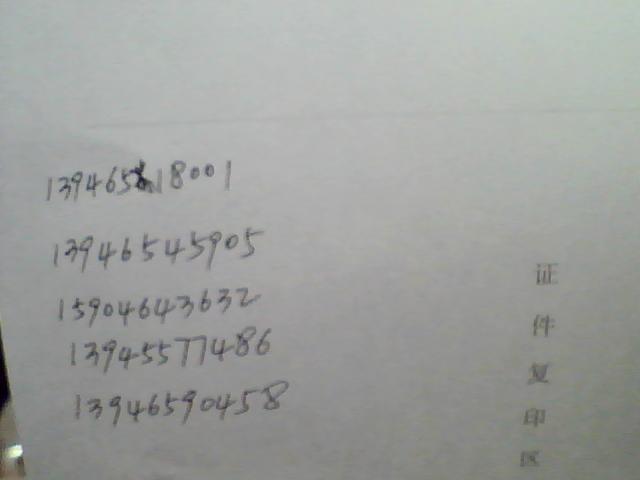 13946518001
13946545905
15904643632
13945577486
13946590458
证件复印区